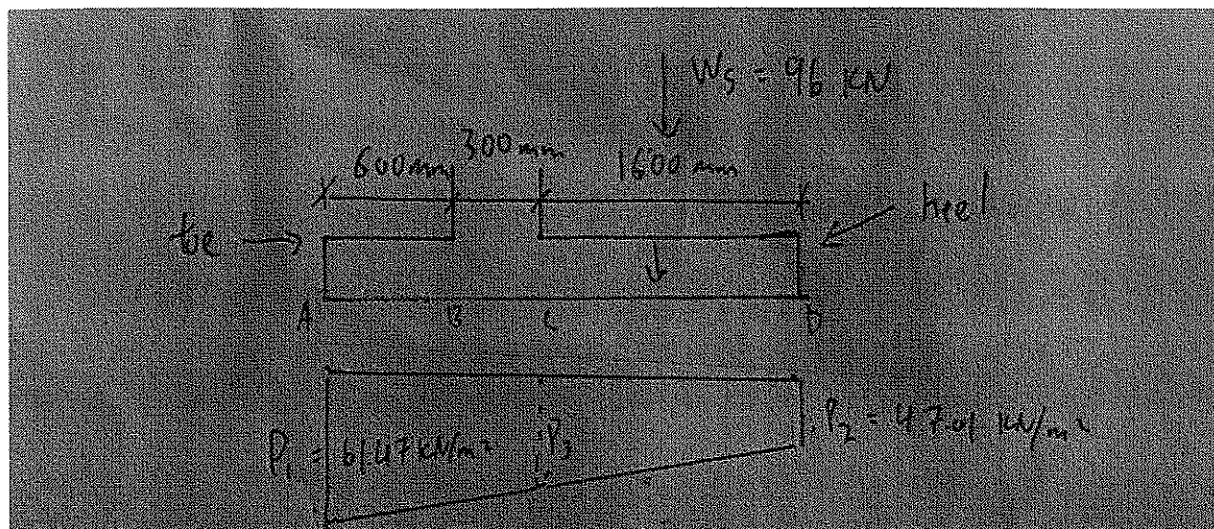 Ws = 96 kN
600mm 300mm 1600mm
toe heel
A B C D
P1 = 61.47 kN/m²
P3
P2 = 47.01 kN/m²